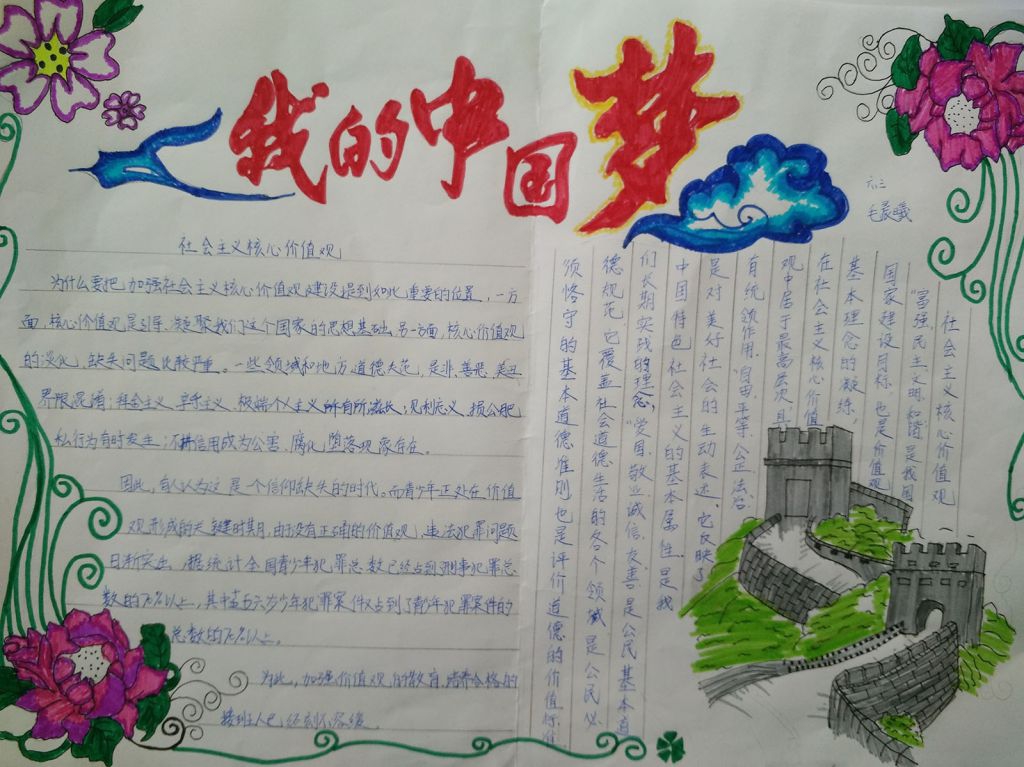 我的中国梦
六二
毛晨曦
社会主义核心价值观
为什么要把加强社会主义核心价值观建设提到如此重要的位置，一方
面，核心价值观是引导、凝聚我们这个国家的思想基础。另一方面，核心价值观
的淡化，缺失问题比较严重。一些领域和地方道德失范，是非、善恶、美丑
界限混淆，拜金主义、享乐主义、极端个人主义所有所滋长，见利忘义、损公肥
私行为有时发生；不讲信用成为公害，腐化堕落现象存在。
因此，有人认为这是一个信仰缺失的时代。而青少年正处在价值
观形成的关键时期，由于没有正确的价值观，违法犯罪问题
日渐突出，据统计全国青少年犯罪总数已经占到刑事犯罪总
数的70%以上，其中十五六岁少年犯罪案件又占到了青少年犯罪案件的
总数的70%以上。
为此，加强价值观的教育，培养合格的
接班人已经刻不容缓。
社会主义核心价值观（一）
“富强、民主、文明、和谐”，是我国
国家建设目标，也是价值观
基本理念的凝练，
在社会主义核心价值
观中居于最高层次，具
有统领作用。“自由、平等、公正、法治
是对美好社会的生动表述，它反映了
中国特色社会主义的基本属性，是我
们长期实践的理念。“爱国、敬业、诚信、友善”是公民基本道
德规范，它覆盖社会道德生活的各个领域，是公民必
须恪守的基本道德准则，也是评价道德的价值标准